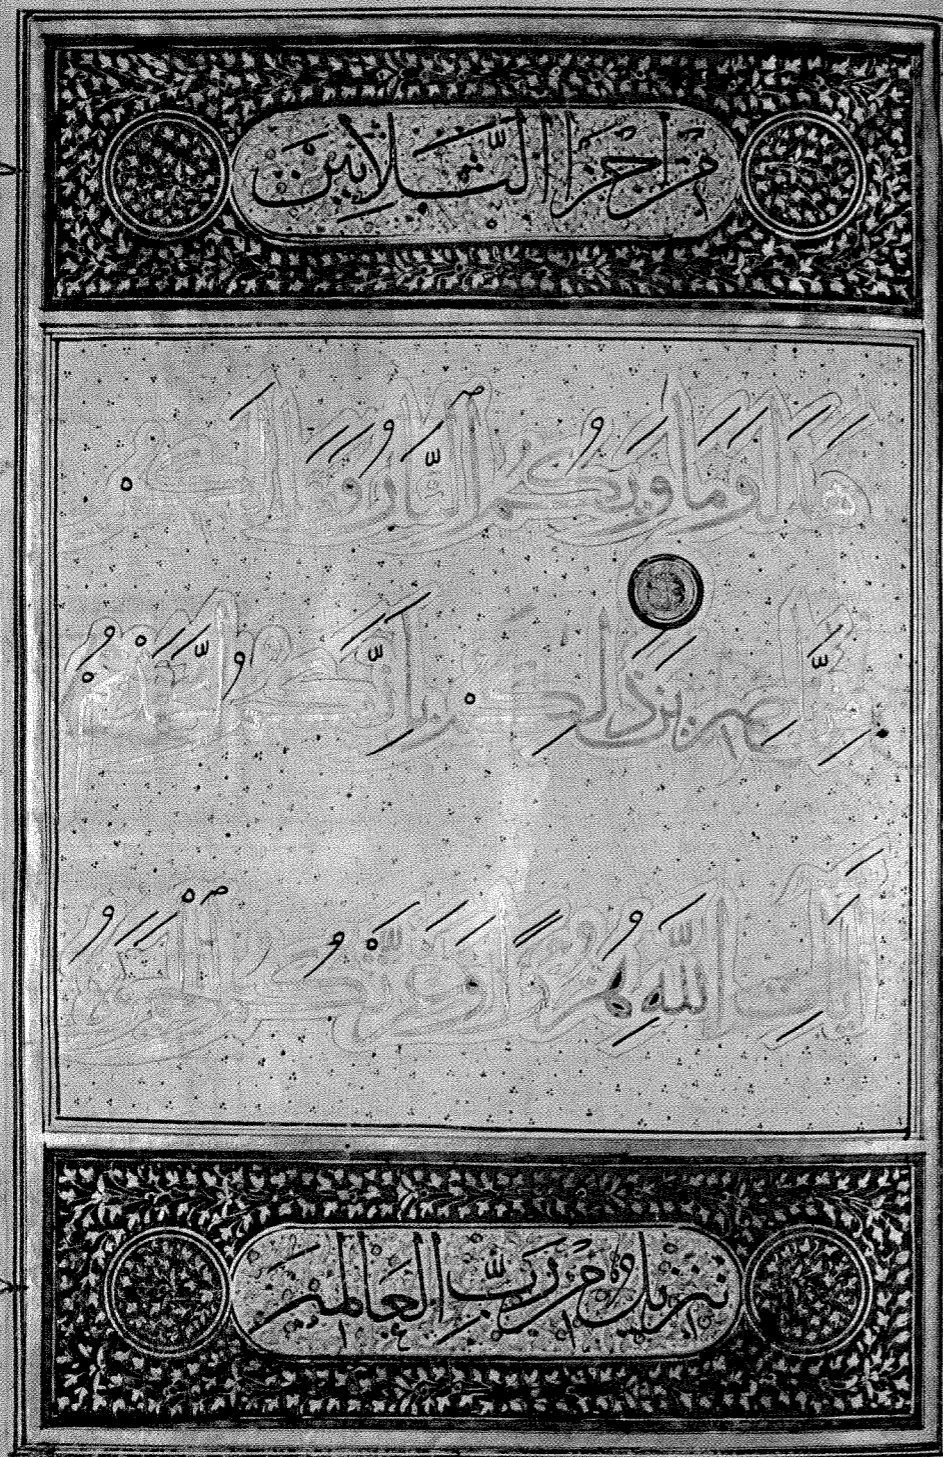 من اجزا الثلاثين
هذا وماويكم النار وما لكم
من نصرين ذلكم بانكم اتخذتم
ايت الله هزوا وغرتكم الحيوة
تنزيل من رب العالمين